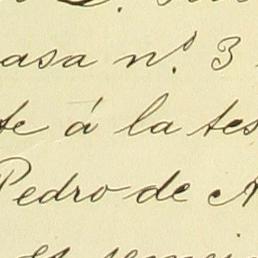 asa n.º 3
te á la tes
Pedro de A